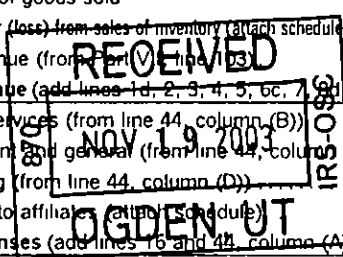 of goods sold
(loss) from sales of inventory (attach schedule
nue (from Part VII, line 103)
nue (add lines 1d, 2, 3, 4, 5, 6c, 7,
ervices (from line 44, column (B))
nt and general (from line 44, colu
g (from line 44, column (D))
to affiliates (attach schedule)
nses (add lines 16 and 44, column (A
RECEIVED
870
NOV 19 2003
IRS-OSC
OGDEN, UT